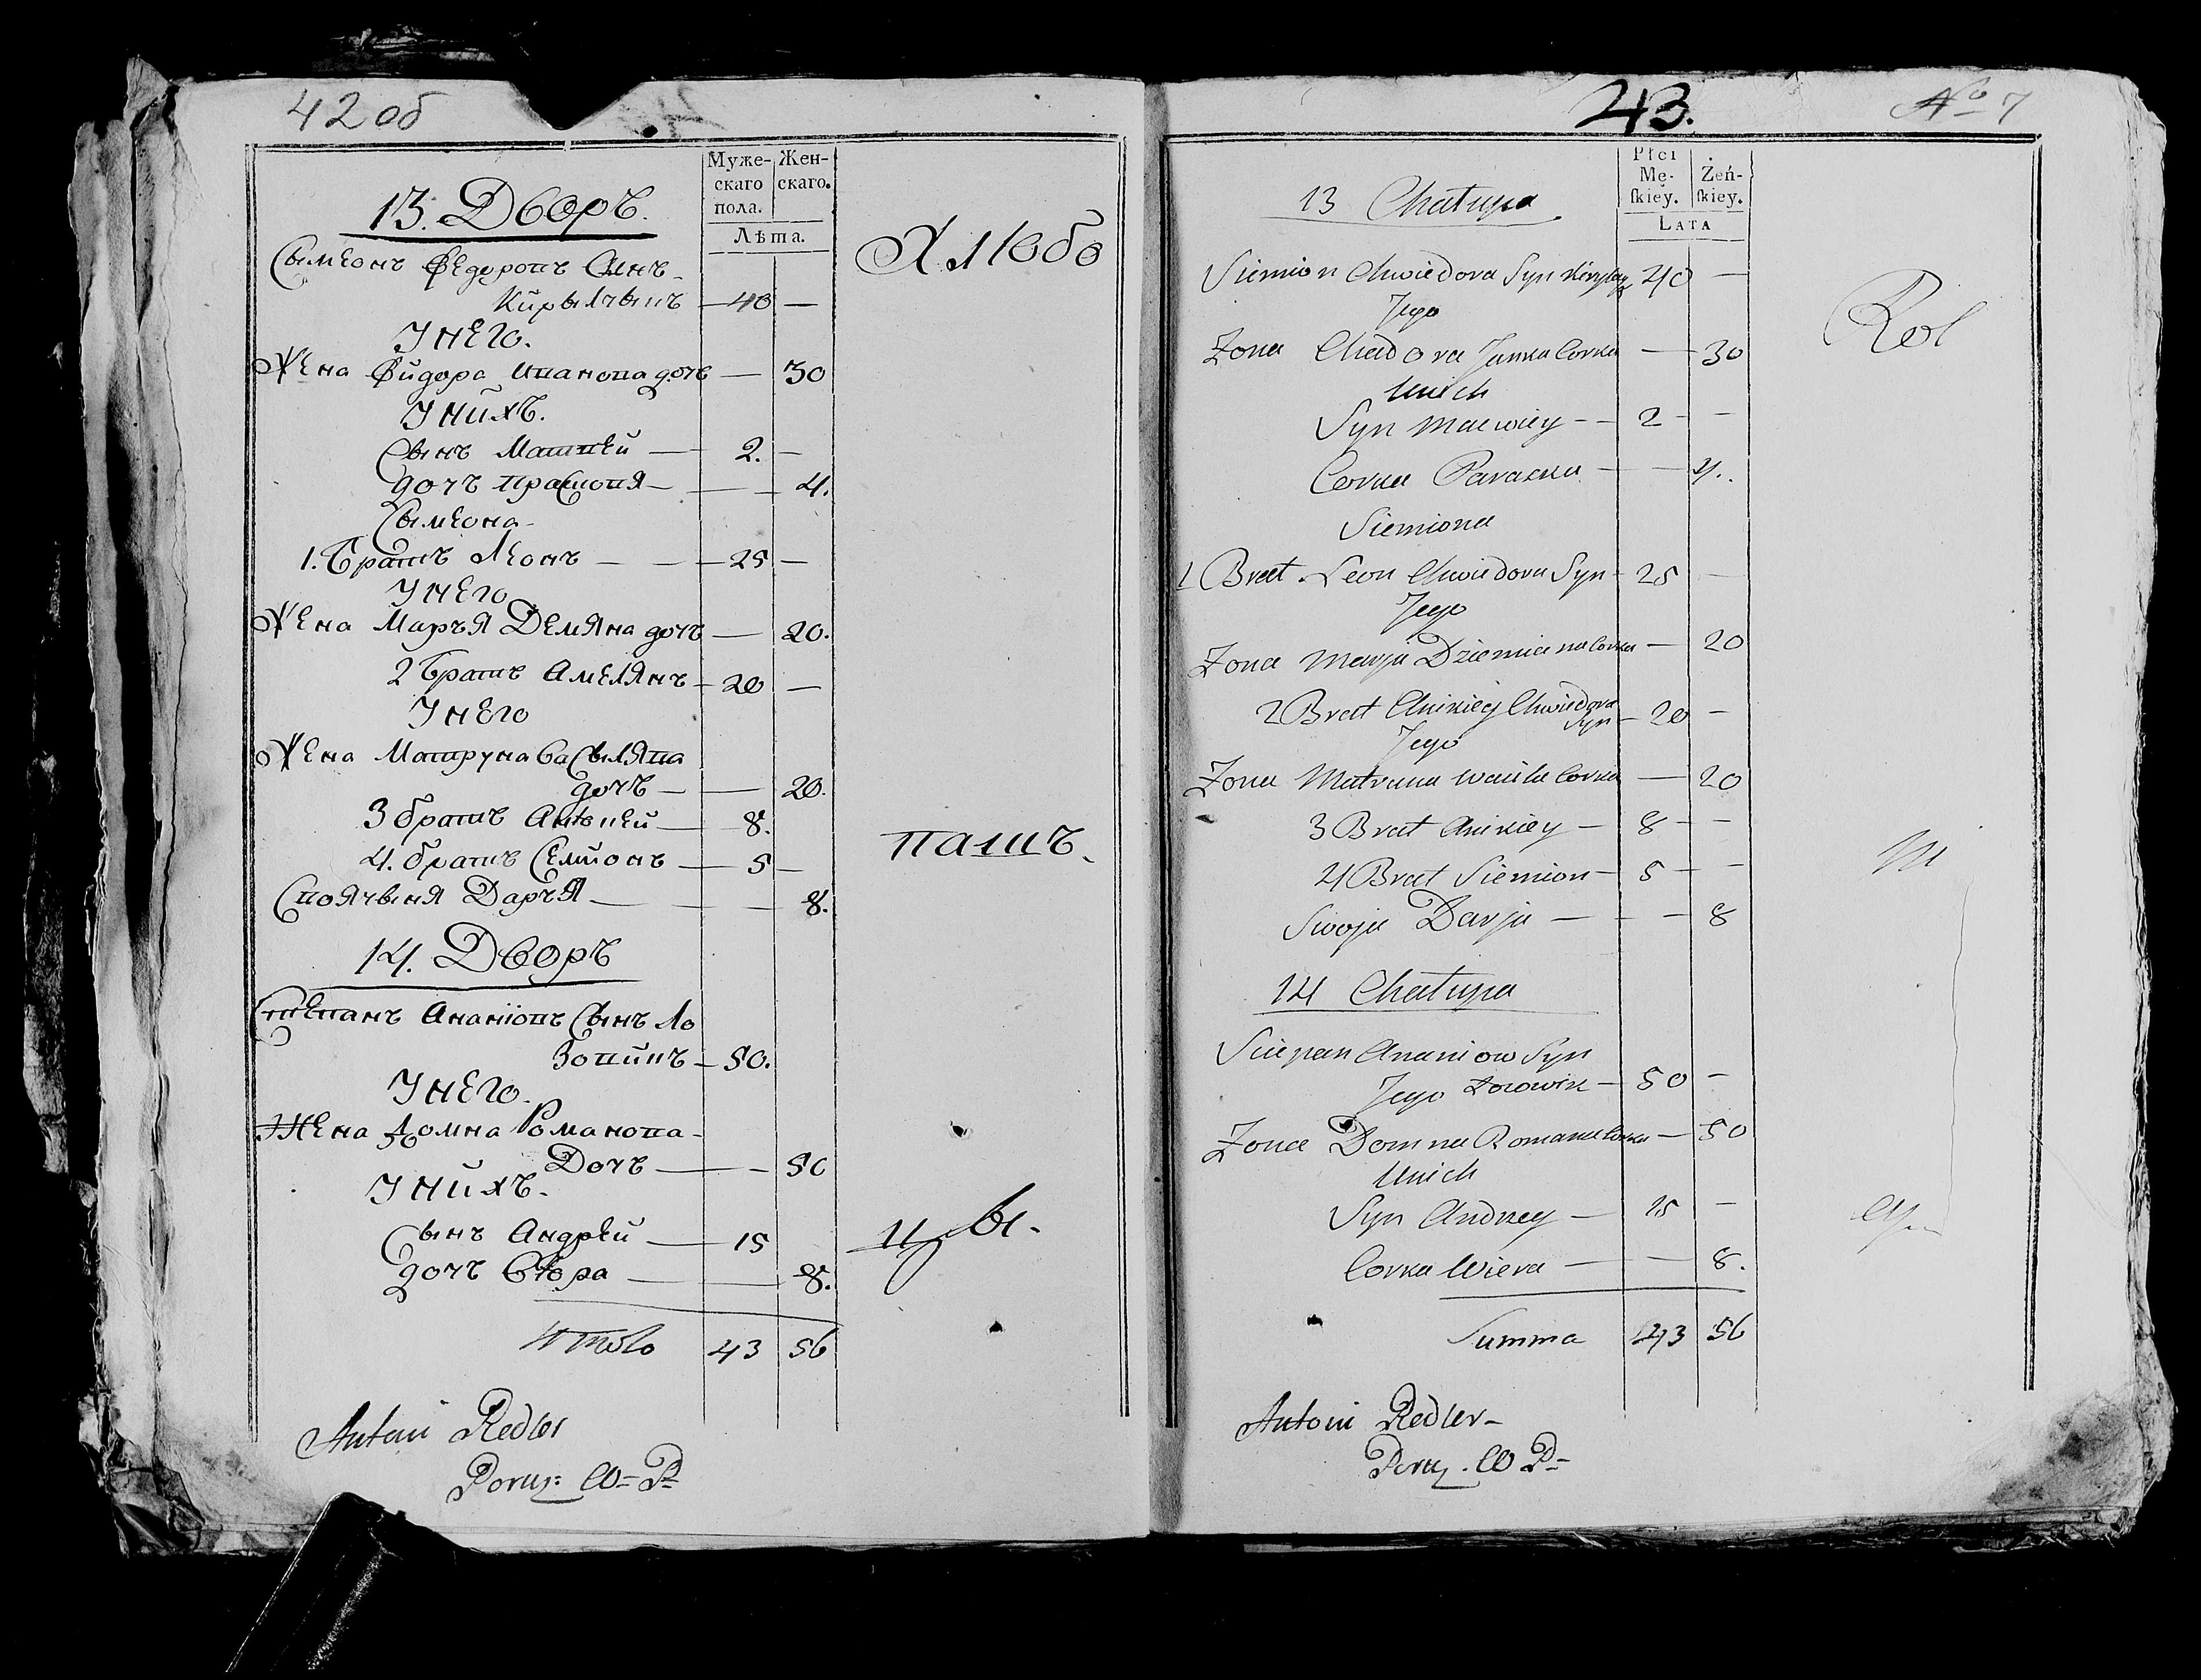 42 об
13. Дворъ.
Муже-
скаго
пола.
Жен-
скаго.
Лѣта.
Сымеонъ Федоровъ Сынъ
Кирылчыкъ — 40 —
У него.
Жена Фидора Иванова дочь — 30
У нихъ.
Сынъ Матвей — 2. —
дочъ Прасковя — 4.
Сымеона
1. Братъ Леонъ — 25 —
У него
Жена Маръя Демяна дочъ — 20.
2 Братъ Амелянъ — 20 —
У него
Жена Матруна Васылява
дочъ — 20.
3 братъ — 8.
4. братъ Семионъ — 5 —
Своячыня Даръя — 8.
14. Дворъ
Степанъ Ананіовъ Сынъ Ло
зовикъ — 50.
У него.
Жена Домна Романова
Дочъ — 50
У нихъ.
Сынъ Андрей — 15
дочъ Вѣра — 8.
Итого 43 56
Antoni Redler
Poruz: W= P=
43.
№ 7
13 Chatupa
Płci
Mę-
ſkiey.
Żeń-
ſkiey.
Lata
Siemion Chwiedora Syn 40 —
Jego
Zona Chadora Janka Corka — 30
Unich
Syn Maćwiey — 2 —
Corka Paraska — 4.
Siemiona
1 Brat Leon Chwiedora Syn 25 —
Jego
Zona Marja Dziemiana Corka — 20
2 Brat Chwiedora
Syn — 20 —
Jego
Zona Matruna Wasila Corka — 20
3 Brat — 8 —
4 Brat Siemion — 5 —
Swoja Darja — 8
14 Chatupa
Sciepan Ananiow Syn
Jego Łozowik — 50 —
Zona Domna Romana Corka — 50
Unich
Syn Andrzey — 15 —
Corka Wiera — 8.
Summa 43 56
Antoni Redler
Poruz. W P=